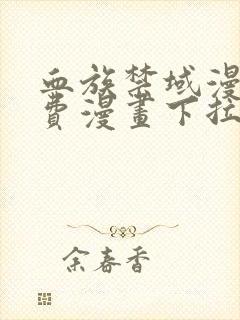 血族禁域漫
費漫畫下拉
余春香